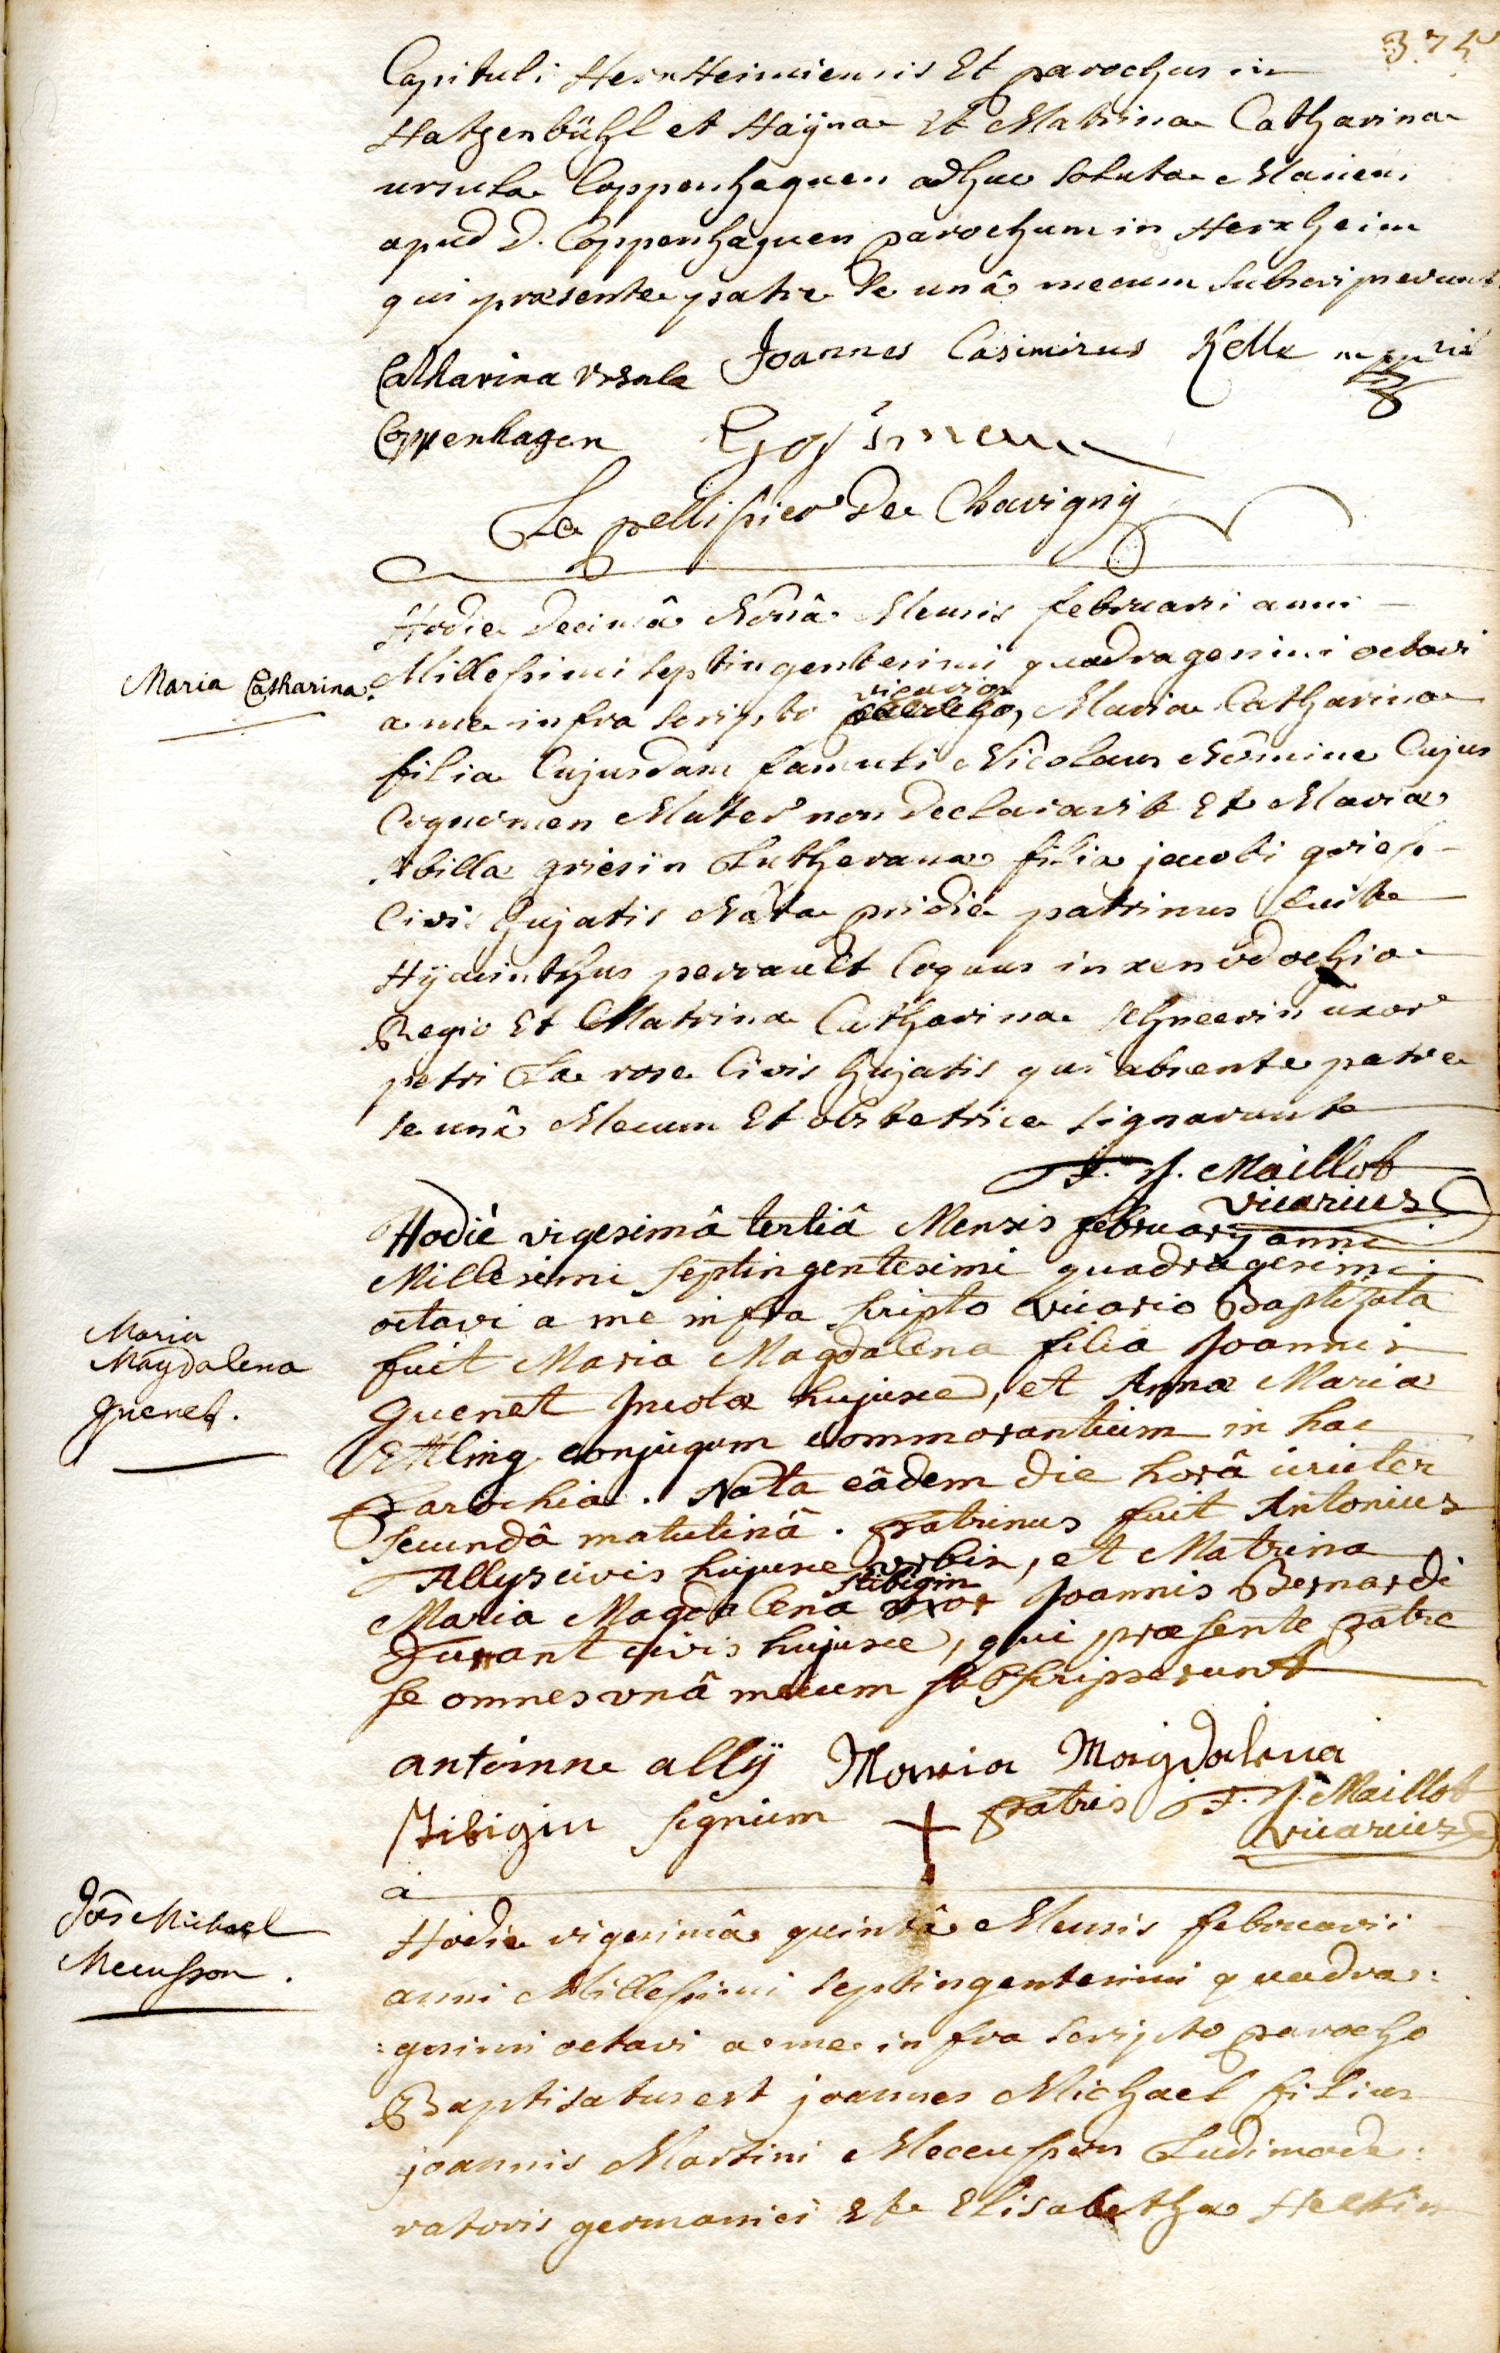 375
Capituli HernHeimiensis Et parochus in
Hatzenbühl et Haÿna Et Matrina Catharina
ursula Coppenhaguen adhuc soluta Manens
apud D. Coppenhaguen parochum in Herxheim
qui præsente patre se unâ mecum subscripserunt
Catharina Vrsula Joannes Casimirus Kelle
Coppenhagen
Le pellissier De Chavigny
Maria Catharina
Hodie Decimâ Nonâ Mensis februarii anni
Millessimi septingentesimi quadragesimi octavi
vicario
a me infra scripto Maria Catharina
filia Cujusdam famuli Nicolaus Nomine Cujus
Cognomen Mater non Declaravit Et Maria
Sibilla griesin Lutherana filia jacobi gries
Civis hujatis Nata pridie patrinus fuit
Hÿacinthus perrault Coquus in xenodochio
Regio Et Matrina Catharina schneerin uxor
petri La rose Civis hujatis qui absente patre
se unâ Mecum Et obstetrice signarunt
F. J. Maillot
vicarius
Maria
Magdalena
Guenet.
Hodiè vigesimâ tertiâ Mensis februarÿ anni
Millesimi septingentesimi quadragesimi
octavi a me infra scripto vicario Baptizata
fuit Maria Magdalena filia Joannis
Guenet Incolæ hujusce, et Annæ Mariæ
Ettling conjugum commorantium in hac
Parochia. Nata eâdem die horâ circiter
secundâ matutinâ. Patrinus fuit Antonius
Allys civis hujusce urbis, et Matrina
Stibigin
Maria Magdalena uxor Joannis Bernardi
Durant civis hujusce, qui præsente Patre
se omnes vnâ mecum subscripserunt
antoinne allÿ Maria Magdalena
Stibigin signum + Patris F. J. Maillot
vicarius
Joës Michael
Mecusson.
Hodie vigesimâ quintâ Mensis februarii
anni Millessimi septingentesimi quadra:
:gesimi octavi a me infra scripto parocho
Baptisatus est joannes Michael filius
joannis Martini Mecusson Ludimode:
ratoris germanici Et Elisabetha